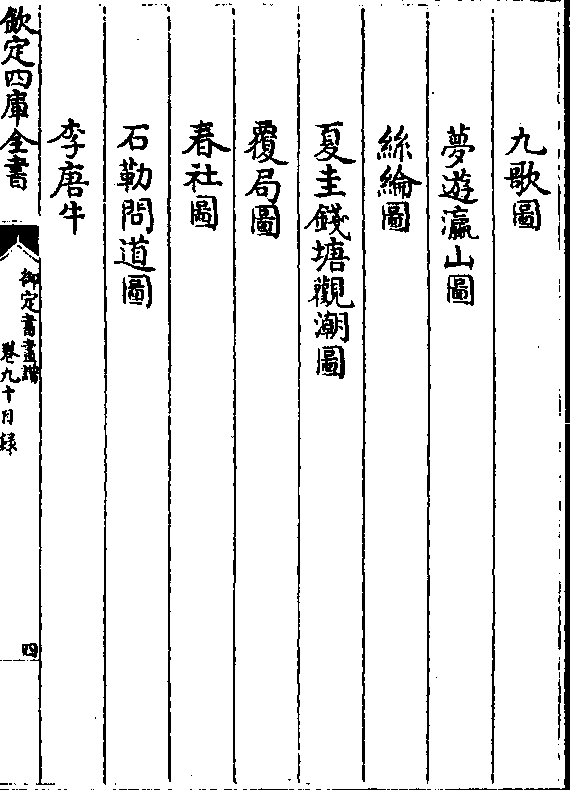 九歌圖
夢遊瀛山圖
絲綸圖
夏圭錢塘觀潮圖
覆局圖
春社圖
石勒問道圖
李唐牛
欽定四庫全書
御定書畫譜
卷九十目錄
四